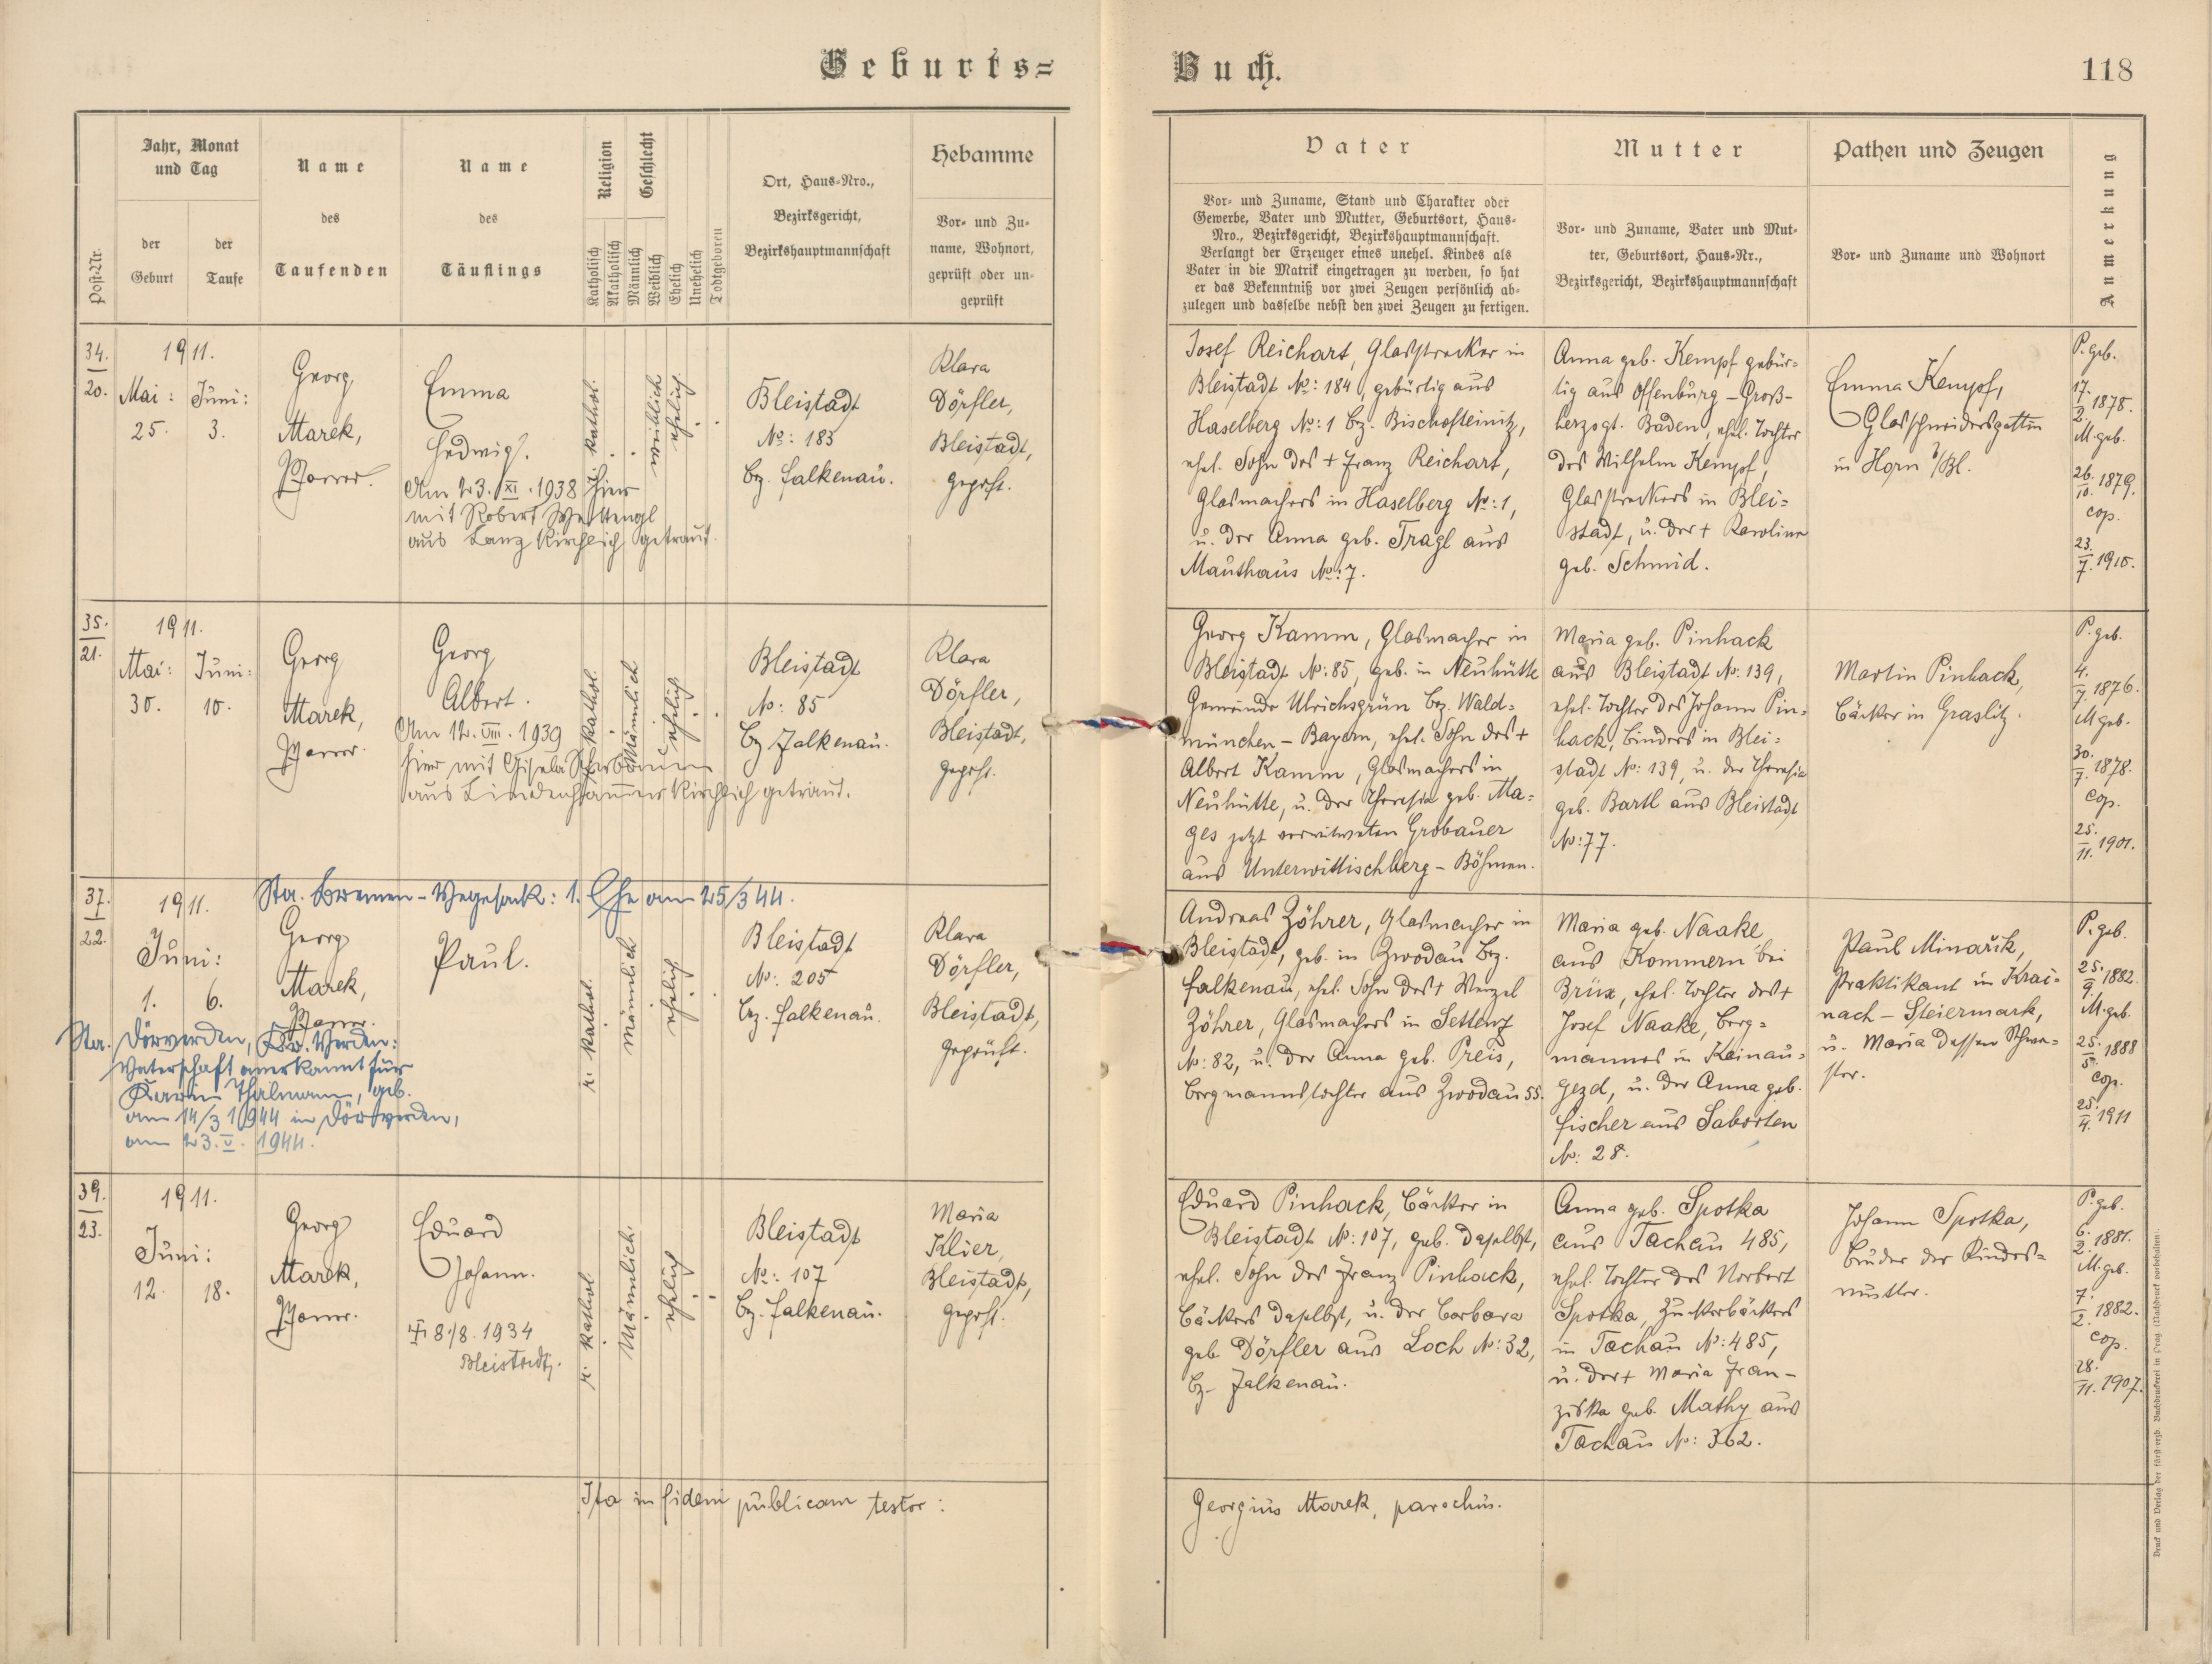 Geburts=
Buch.
118
Post-Nr.
Jahr, Monat
und Tag
der
Geburt
der
Taufe
Name
des
Taufenden
Name
des
Täuflings
Religion
Geschlecht
Katholisch
Akatholisch
Männlich
Weiblich
Ehelich
Unehelich
Todtgeboren
Ort, Haus-Nro.,
Bezirksgericht,
Bezirkshauptmannschaft
Hebamme
Vor- und Zu-
name, Wohnort,
geprüft oder un-
geprüft
Vater
Vor- und Zuname, Stand und Charakter oder
Gewerbe, Vater und Mutter, Geburtsort, Haus-
Nro., Bezirksgericht, Bezirkshauptmannschaft.
Verlangt der Erzeuger eines unehel. Kindes als
Vater in die Matrik eingetragen zu werden, so hat
er das Bekenntniß vor zwei Zeugen persönlich ab-
zulegen und dasselbe nebst den zwei Zeugen zu fertigen.
Mutter
Vor- und Zuname, Vater und Mut-
ter, Geburtsort, Haus-Nr.,
Bezirksgericht, Bezirkshauptmannschaft
Pathen und Zeugen
Vor- und Zuname und Wohnort
Anmerkung
34.
20.
1911.
Mai:
25.
Juni:
3.
Georg
Marek,
Pfarrer.
Emma
Hedwig.
Am 23. XI. 1938 hier
mit Robert
aus Lanz kirchlich getraut.
r. kathol.
weiblich
ehelich
Bleistadt
No: 183
Bez. Falkenau.
Klara
Dörfler,
Bleistadt,
geprft.
Josef Reichart, Glasstrecker in
Bleistadt No: 184, gebürtig aus
Haselberg No: 1 Bez. Bischofteinitz,
ehel. Sohn des + Franz Reichart,
Glasmachers in Haselberg No: 1,
u. der Anna geb. Tragl aus
Mauthaus No: 7.
Anna geb. Kempf gebür=
tig aus Offenburg - Groß-
herzogt. Baden, ehel. Tochter
des Wilhelm Kempf,
Glasstreckers in Blei=
stadt, u. der + Karoline
geb. Schmid.
Emma Kempf,
Glasschneidersgattin
in Horn b/Bl.
P. geb.
17.
2. 1878.
M. geb.
26.
10. 1879.
cop.
23.
7. 1910.
35.
21.
1911.
Mai:
30.
Juni:
10.
Georg
Marek,
Pfarrer.
Georg
Albert.
Am 12. VIII. 1939
hier mit Gisela
aus Lindenhammer kirchlich getraut.
r. kathol.
Männlich
ehelich
Bleistadt
No: 85
Bz. Falkenau.
Klara
Dörfler,
Bleistadt,
geprft.
Georg Kamm, Glasmacher in
Bleistadt No: 85, geb. in Neuhütte
Gemeinde Ulrichsgrün Bez. Wald=
münchen - Bayern, ehel. Sohn des +
Albert Kamm, Glasmachers in
Neuhütte, u. der Theresia geb. Ma=
ges jetzt verwitweten Grobauer
aus Unterwittischberg - Böhmen.
Maria geb. Pinhack
aus Bleistadt No: 139,
ehel. Tochter des Johann Pin=
hack, Binders in Blei=
stadt No: 139, u. der Theresia
geb. Bartl aus Bleistadt
No: 77.
Martin Pinhack,
Bäcker in Graslitz.
P. geb.
4.
7. 1876.
M. geb.
30.
7. 1878.
cop.
25.
11. 1901.
Sta. Bremen - Vegesack: 1. Ehe am 25/3 44.
37.
22.
1911.
Juni:
1. 6.
Georg
Marek,
Pfarrer.
Paul.
Sta. Dörverden, Kr. Verden:
Vaterschaft anerkannt für
Karin Thalmann, geb.
am 14/3 1944 in Dörverden,
am 23. V. 1944.
r. kathol.
Männlich
ehelich
Bleistadt
No: 205
Bez. Falkenau.
Klara
Dörfler,
Bleistadt,
geprüft.
Andreas Zöhrer, Glasmacher in
Bleistadt, geb. in Zwodau Bez.
Falkenau, ehel. Sohn des + Wenzel
Zöhrer, Glasmachers in Settenz
No: 82, u. der Anna geb. Preis,
Bergmannstochter aus Zwodau 55.
Maria geb. Naake
aus Kommern bei
Brüx, ehel. Tochter des +
Josef Naake, Berg=
mannes in Kainau=
gezd, u. der Anna geb.
Fischer aus Saborten
No: 28.
Paul Minařik,
Praktikant in Krai=
nach - Steiermark,
u. Maria dessen Schwe=
ster.
P. geb.
25.
9. 1882.
M. geb.
25.
5. 1888
cop.
25.
4. 1911
39.
23.
1911.
Juni:
12. 18.
Georg
Marek,
Pfarrer.
Eduard
Johann.
8./8. 1934
Bleistadt.
r. kathol.
Männlich.
ehelich
Bleistadt
No: 107
Bz. Falkenau.
Maria
Klier,
Bleistadt,
geprft.
Eduard Pinhack, Bäcker in
Bleistadt No: 107, geb. daselbst,
ehel. Sohn des Franz Pinhack,
Bäckers daselbst, u. der Barbara
geb. Dörfler aus Loch No: 32,
Bz. Falkenau.
Anna geb. Spotka
aus Tachau 485,
ehel. Tochter des Norbert
Spotka, Zuckerbäckers
in Tachau No: 485,
u. der + Maria Fran-
ziska geb. Mathy aus
Tachau No: 362.
Johann Spotka,
Bruder der Kindes=
mutter.
P. geb.
6.
2. 1881.
M. geb.
7.
2. 1882.
cop.
28.
11. 1907.
Ita in fidem publicam testor:
Georgius Marek, parochus.
Druck und Verlag der fürst-erzb. Buchdruckerei in Prag. (Nachdruck vorbehalten).